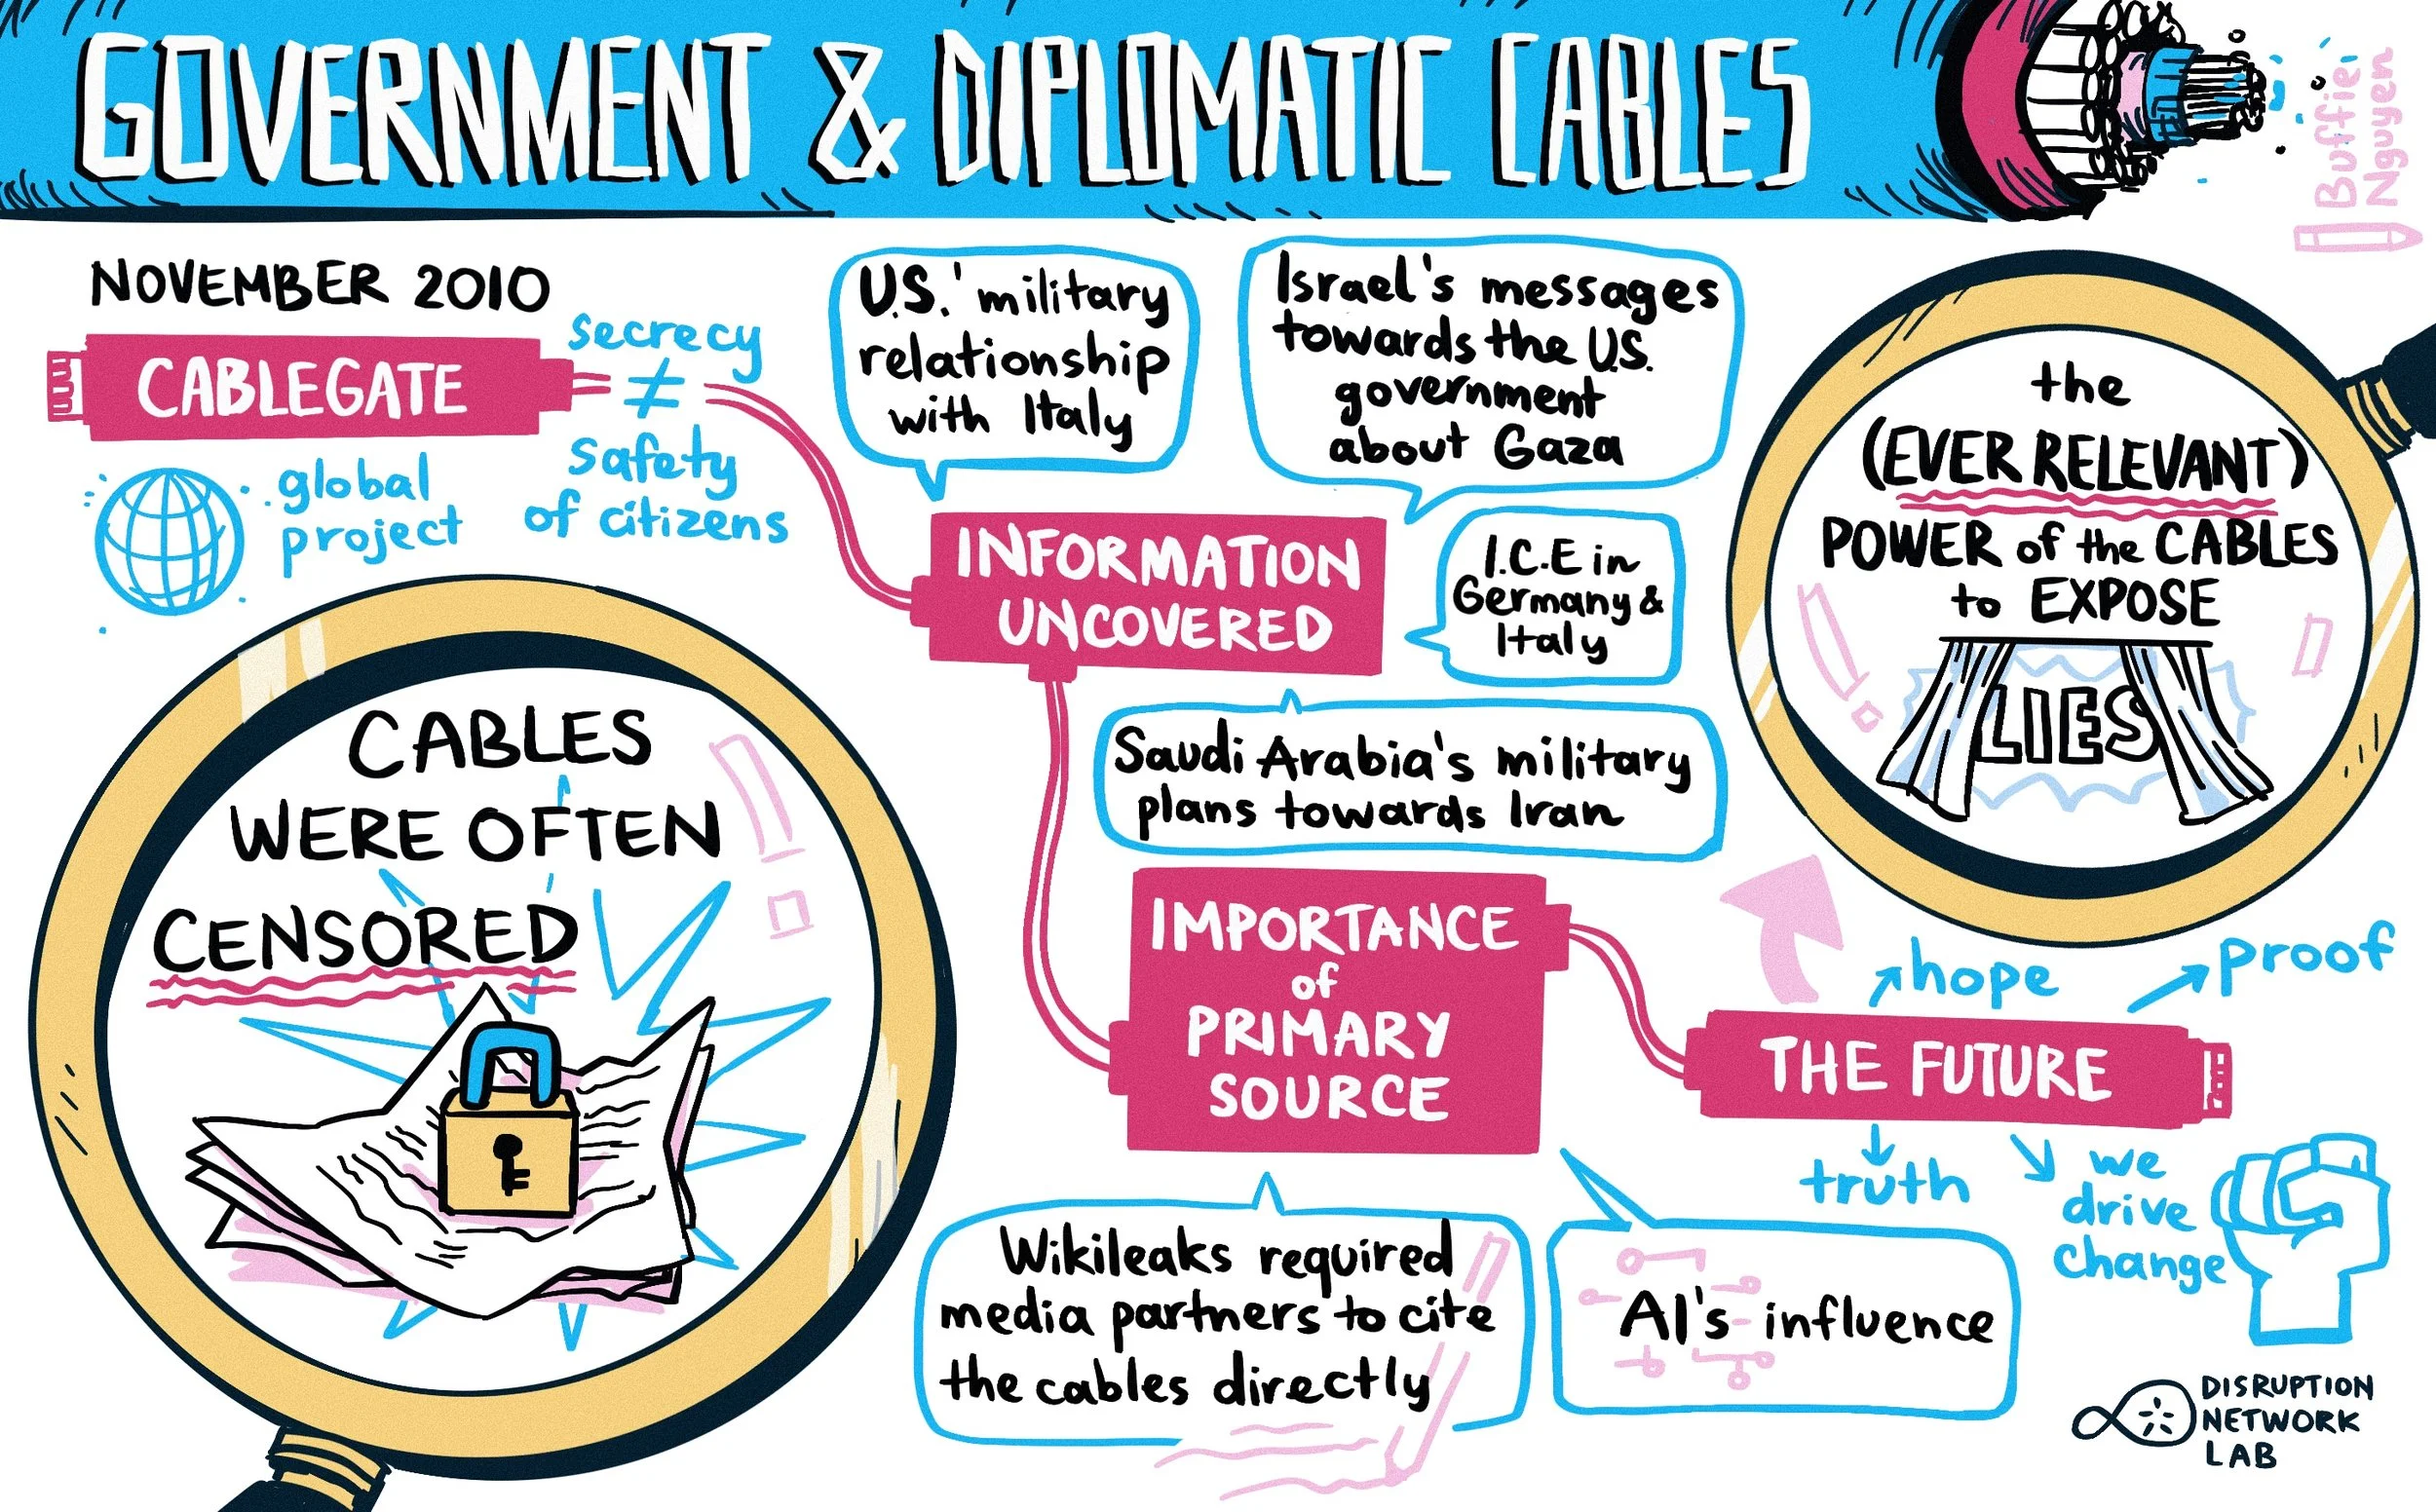 GOVERNMENT & DIPLOMATIC CABLES
Buffie
Nguyen
NOVEMBER 2010
CABLEGATE
secrecy
≠
safety
of citizens
global
project
U.S.' military
relationship
with Italy
Israel's messages
towards the U.S.
government
about Gaza
INFORMATION
UNCOVERED
I.C.E in
Germany &
Italy
Saudi Arabia's military
plans towards Iran
the
(EVER RELEVANT)
POWER of the CABLES
to EXPOSE
LIES
CABLES
WERE OFTEN
CENSORED
IMPORTANCE
of
PRIMARY
SOURCE
Wikileaks required
media partners to cite
the cables directly
AI's influence
THE FUTURE
hope
proof
truth
we
drive
change
DISRUPTION
NETWORK
LAB